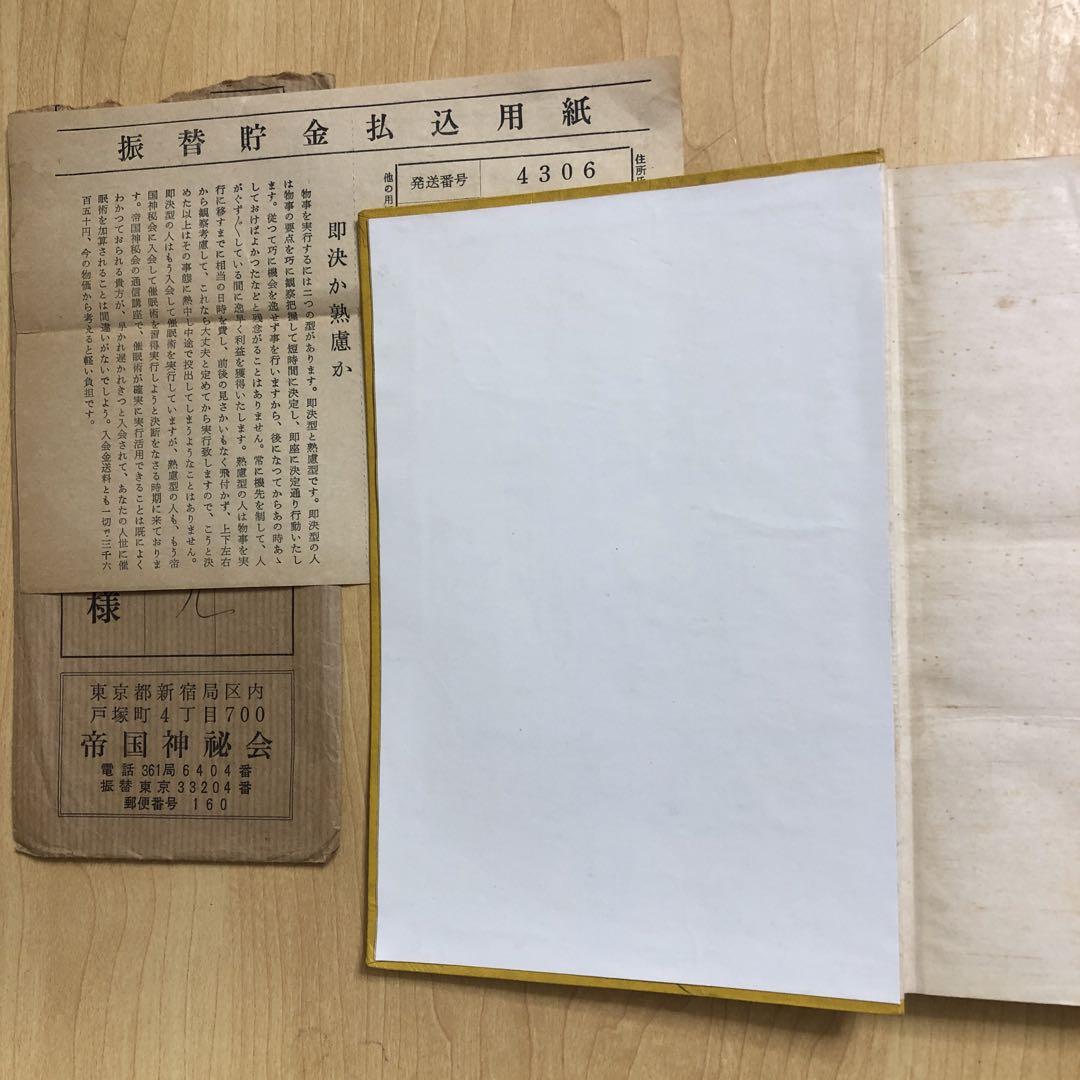 振替貯金払込用紙
発送番号 4306
住所氏
他の用
即決か熟慮か
物事を実行するには二つの型があります。即決型と熟慮型です。即決型の人
は物事の要点を巧に観察把握して短時間に決定し、即座に決定通り行動いたし
ます。従つて巧に機会を逸せず事を行いますから、後になつてからあの時あゝ
しておけばよかつたなどと残念がることはありません。常に機先を制して、人
がぐず〳〵している間に逸早く利益を獲得いたします。熟慮型の人は物事を実
行に移すまでに相当の日時を費し、前後の見さかいもなく飛付かず、上下左右
から観察考慮して、これなら大丈夫と定めてから実行致しますので、こうと決
めた以上はその事態に熱中し中途で投出してしまうようなことはありません。
即決型の人はもう入会して催眠術を実行していますが、熟慮型の人も、もう帝
国神秘会に入会して催眠術を習得実行しようと決断をなさる時期に来ておりま
す。帝国神秘会の通信講座で、催眠術が確実に実行活用できることは既によく
わかつておられる貴方が、早かれ遅かれきつと入会されて、あなたの人世に催
眠術を加算されることは間違いがないでしょう。入会金送料とも一切で三千六
百五十円、今の物価から考えると軽い負担です。
様
東京都新宿局区内
戸塚町4丁目700
帝国神祕会
電話 361局6404番
振替東京33204番
郵便番号 160